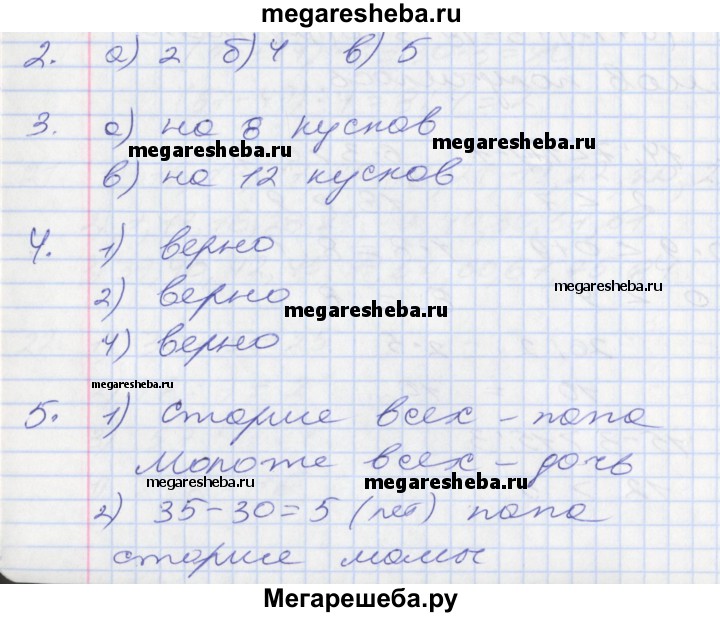 megaresheba.ru
2. а) 2 б) 4 в) 5
3. а) на 8 кусков
megaresheba.ru
megaresheba.ru
в) на 12 кусков
4. 1) верно
2) верно
megaresheba.ru
megaresheba.ru
4) верно
megaresheba.ru
5. 1) Старше всех - папа
Моложе всех - дочь
megaresheba.ru
megaresheba.ru
2) 35-30=5 (лет) папа
старше мамы
Мегарешеба.ру